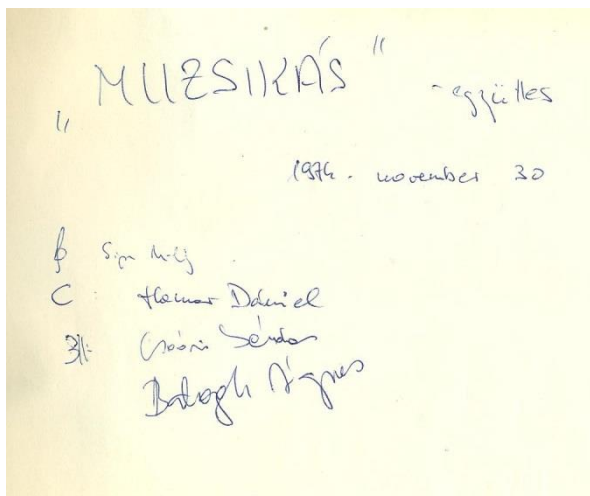 „MUZSIKÁS"
-együttes
1974. november 30
Sipo Mih
C Hamar Dániel
Csoóri Sándor
Balogh Ágnes